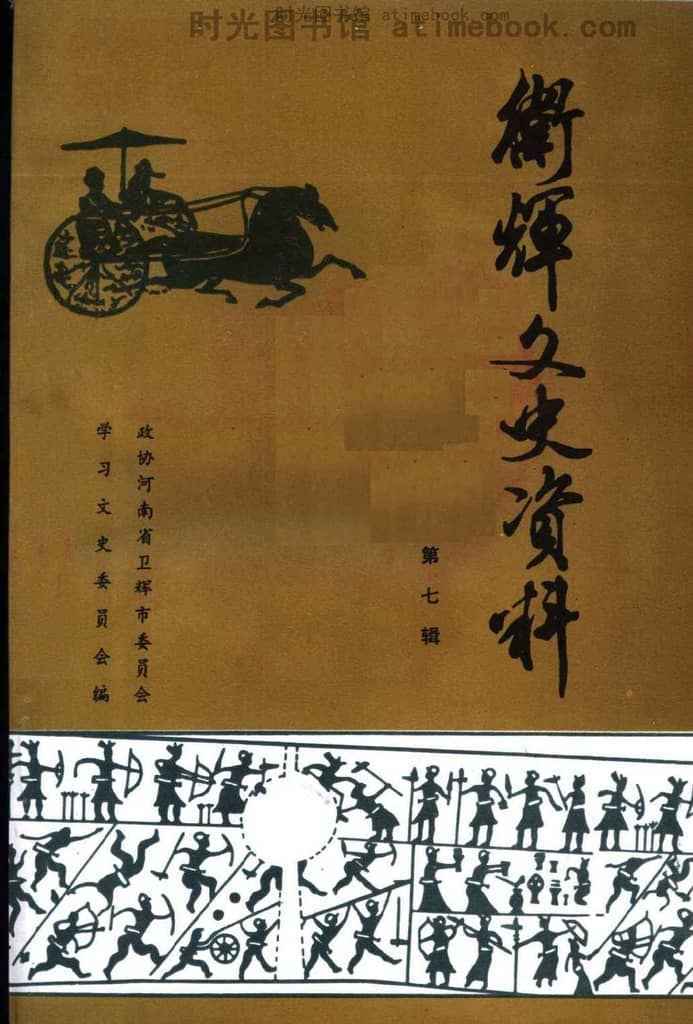 时光图书馆 atimebook.com
时光图书馆 atimebook.com
衛輝文史資料
第七辑
政协河南省卫辉市委员会
学习文史委员会编